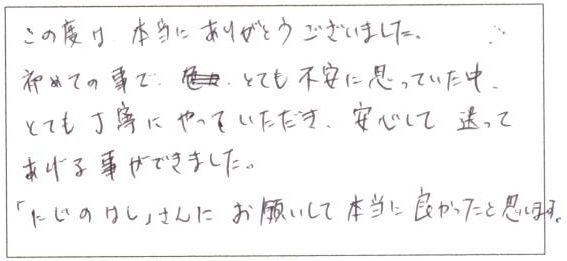 この度は 本当に ありがとうございました。
初めての事で、とても不安に思っていた中、
とても丁寧にやっていただき、安心して 送って
あげる事ができました。
「にじのはし」さんに お願いして 本当に良かったと思います。